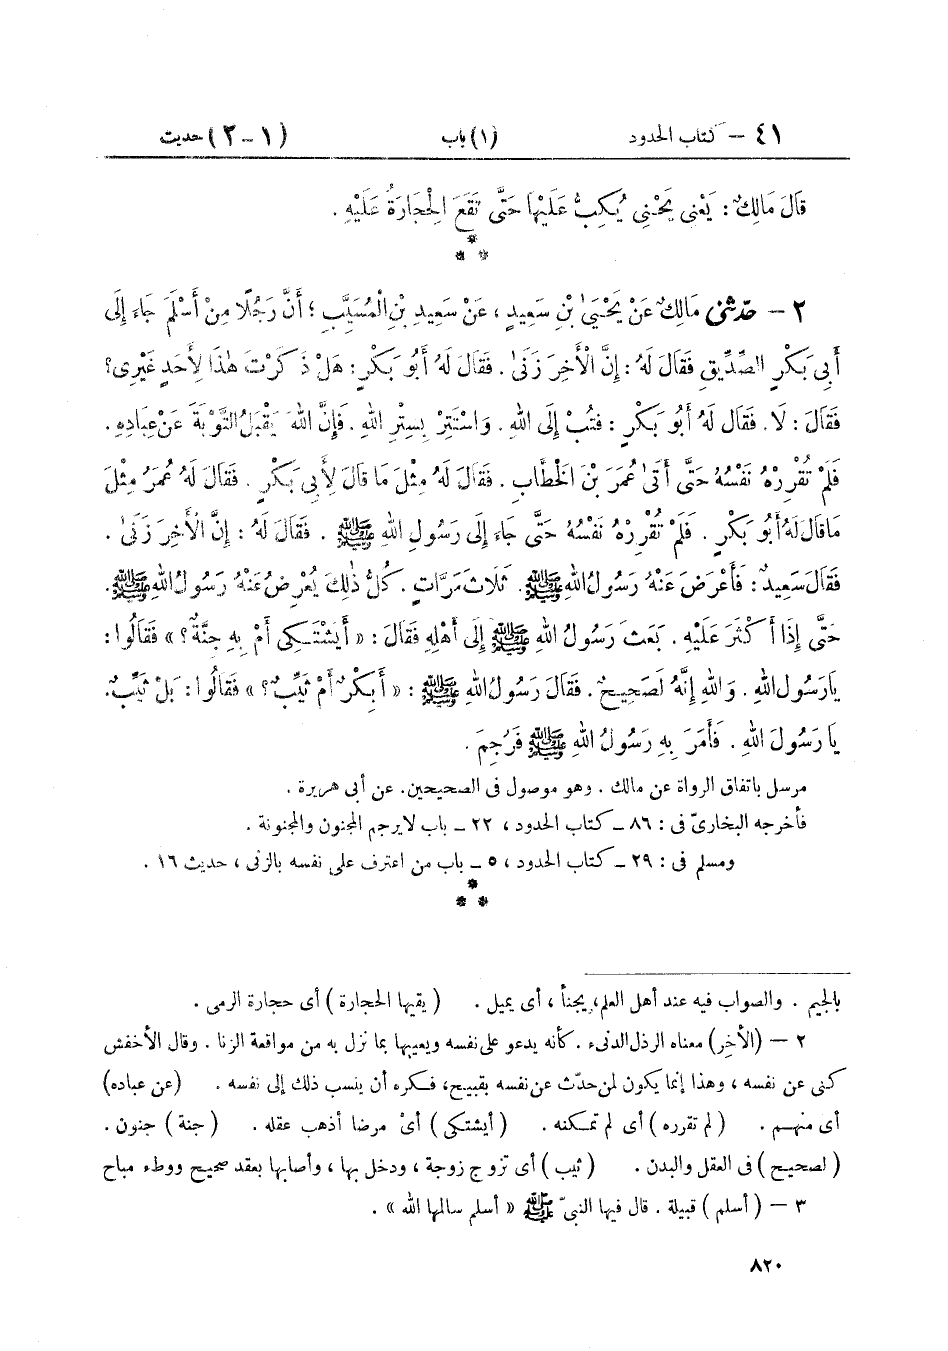 ٤١ – كتاب الحدود (١) باب (١ – ٢) حديث
قَالَ مَالِكٌ : يَعْنِي يَحْنِي يُكِبُّ عَلَيْهَا حَتَّى تَقَعَ الْحِجَارَةُ عَلَيْهِ .
***
٢ – حدّثني مَالِكٌ عَنْ يَحْيَىٰ بْنِ سَعِيدٍ ، عَنْ سَعِيدِ بْنِ الْمُسَيَّبِ ؛ أَنَّ رَجُلًا مِنْ أَسْلَمَ جَاءَ إِلَى
أَبِي بَكْرٍ الصِّدِّيقِ فَقَالَ لَهُ : إِنَّ الْأَخِرَ زَنَىٰ . فَقَالَ لَهُ أَبُو بَكْرٍ : هَلْ ذَكَرْتَ هٰذَا لِأَحَدٍ غَيْرِي ؟
فَقَالَ : لَا . فَقَالَ لَهُ أَبُو بَكْرٍ : فَتُبْ إِلَى اللهِ . وَاسْتَتِرْ بِسِتْرِ اللهِ . فَإِنَّ اللهَ يَقْبَلُ التَّوْبَةَ عَنْ عِبَادِهِ .
فَلَمْ تُقْرِرْهُ نَفْسُهُ حَتَّى أَتَىٰ عُمَرَ بْنَ الْخَطَّابِ . فَقَالَ لَهُ مِثْلَ مَا قَالَ لِأَبِي بَكْرٍ . فَقَالَ لَهُ عُمَرُ مِثْلَ
مَا قَالَ لَهُ أَبُو بَكْرٍ . فَلَمْ تُقْرِرْهُ نَفْسُهُ حَتَّى جَاءَ إِلَى رَسُولِ اللهِ ﷺ . فَقَالَ لَهُ : إِنَّ الْأَخِرَ زَنَىٰ .
فَقَالَ سَعِيدٌ : فَأَعْرَضَ عَنْهُ رَسُولُ اللهِ ﷺ . ثَلَاثَ مَرَّاتٍ . كُلُّ ذٰلِكَ يُعْرِضُ عَنْهُ رَسُولُ اللهِ ﷺ .
حَتَّى إِذَا أَكْثَرَ عَلَيْهِ . بَعَثَ رَسُولُ اللهِ ﷺ إِلَى أَهْلِهِ فَقَالَ : « أَيَشْتَكِي أَمْ بِهِ جِنَّةٌ ؟ » فَقَالُوا :
يَا رَسُولَ اللهِ . وَاللهِ إِنَّهُ لَصَحِيحٌ . فَقَالَ رَسُولُ اللهِ ﷺ : « أَبِكْرٌ أَمْ ثَيِّبٌ ؟ » فَقَالُوا : بَلْ ثَيِّبٌ .
يَا رَسُولَ اللهِ . فَأَمَرَ بِهِ رَسُولُ اللهِ ﷺ فَرُجِمَ .
مرسل باتفاق الرواة عن مالك . وهو موصول فى الصحيحين . عن أبى هريرة .
فأخرجه البخارىّ فى : ٨٦ – كتاب الحدود ، ٢٢ – باب لا يرجم المجنون والمجنونة .
ومسلم فى : ٢٩ – كتاب الحدود ، ٥ – باب من اعترف على نفسه بالزنى ، حديث ١٦ .
***
بالجيم . والصواب فيه عند أهل العلم ، يجنأ ، أى يميل . ( يقيها الحجارة ) أى حجارة الرمى .
٢ – (الأخِر) معناه الرذل الدنىء . كأنه يدعو على نفسه ويعيبها بما نزل به من مواقعة الزنا . وقال الأخفش
كنى عن نفسه ، وهذا إنما يكون لمن حدّث عن نفسه بقبيح ، فكره أن ينسب ذلك إلى نفسه . (عن عباده)
أى منهم . ( لم تقرره ) أى لم تمكنه . ( أيشتكى ) أىْ مرضا أذهب عقله . ( جنة ) جنون .
( لصحيح ) فى العقل والبدن . ( ثيب ) أى تزوج زوجة ، ودخل بها ، وأصابها بعقد صحيح ووطء مباح
٣ – ( أسلم ) قبيلة . قال فيها النبىّ ﷺ « أسلم سالمها الله » .
٨٢٠